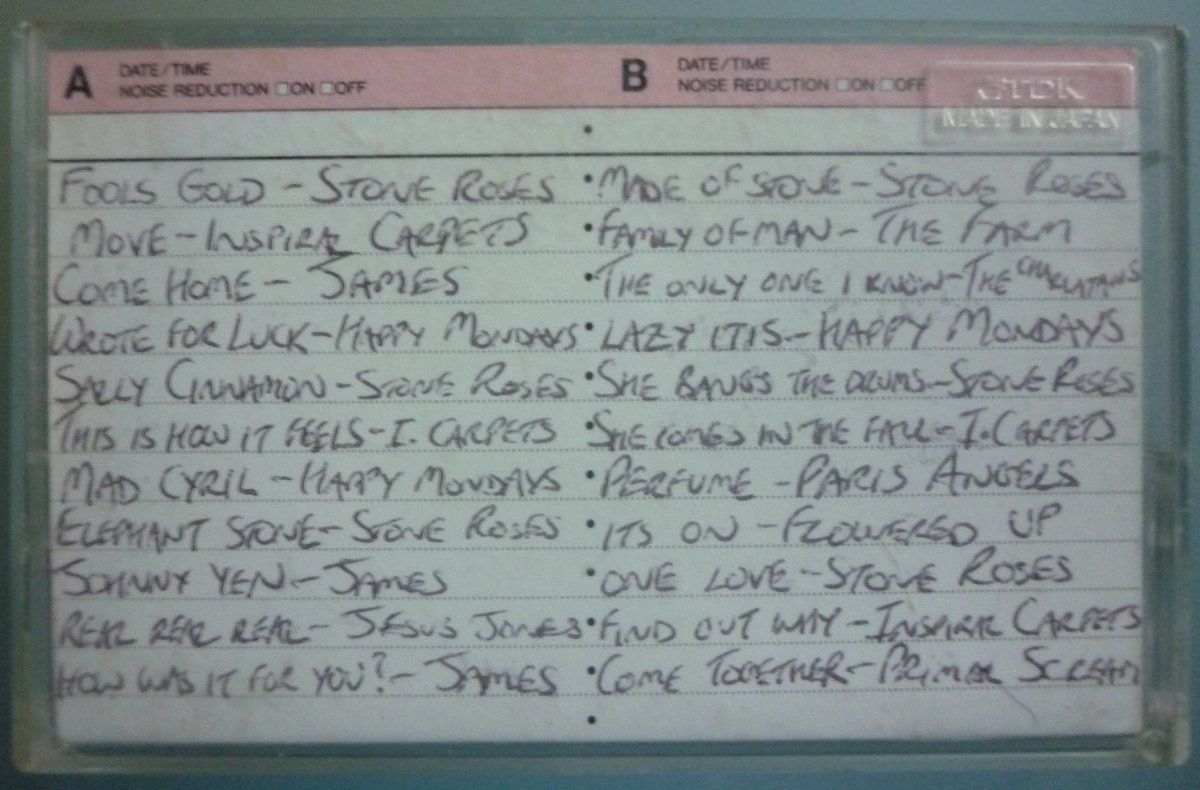 A DATE/TIME
NOISE REDUCTION □ON □OFF
FOOLS GOLD - STONE ROSES
MOVE - INSPIRAL CARPETS
COME HOME - JAMES
WROTE FOR LUCK - HAPPY MONDAYS
SALLY CINNAMON - STONE ROSES
THIS IS HOW IT FEELS - I. CARPETS
MAD CYRIL - HAPPY MONDAYS
ELEPHANT STONE - STONE ROSES
JOHNNY YEN - JAMES
REAL REAL REAL - JESUS JONES
HOW WAS IT FOR YOU? - JAMES
B DATE/TIME
NOISE REDUCTION □ON □OFF
TDK
MADE IN JAPAN
• MADE OF STONE - STONE ROSES
• FAMILY OF MAN - THE FARM
• THE ONLY ONE I KNOW - THE CHARLATANS
• LAZY ITIS - HAPPY MONDAYS
• SHE BANGS THE DRUMS - STONE ROSES
• SHE COMES IN THE FALL - I. CARPETS
• PERFUME - PARIS ANGELS
• ITS ON - FLOWERED UP
• ONE LOVE - STONE ROSES
• FIND OUT WHY - INSPIRAL CARPETS
• COME TOGETHER - PRIMAL SCREAM